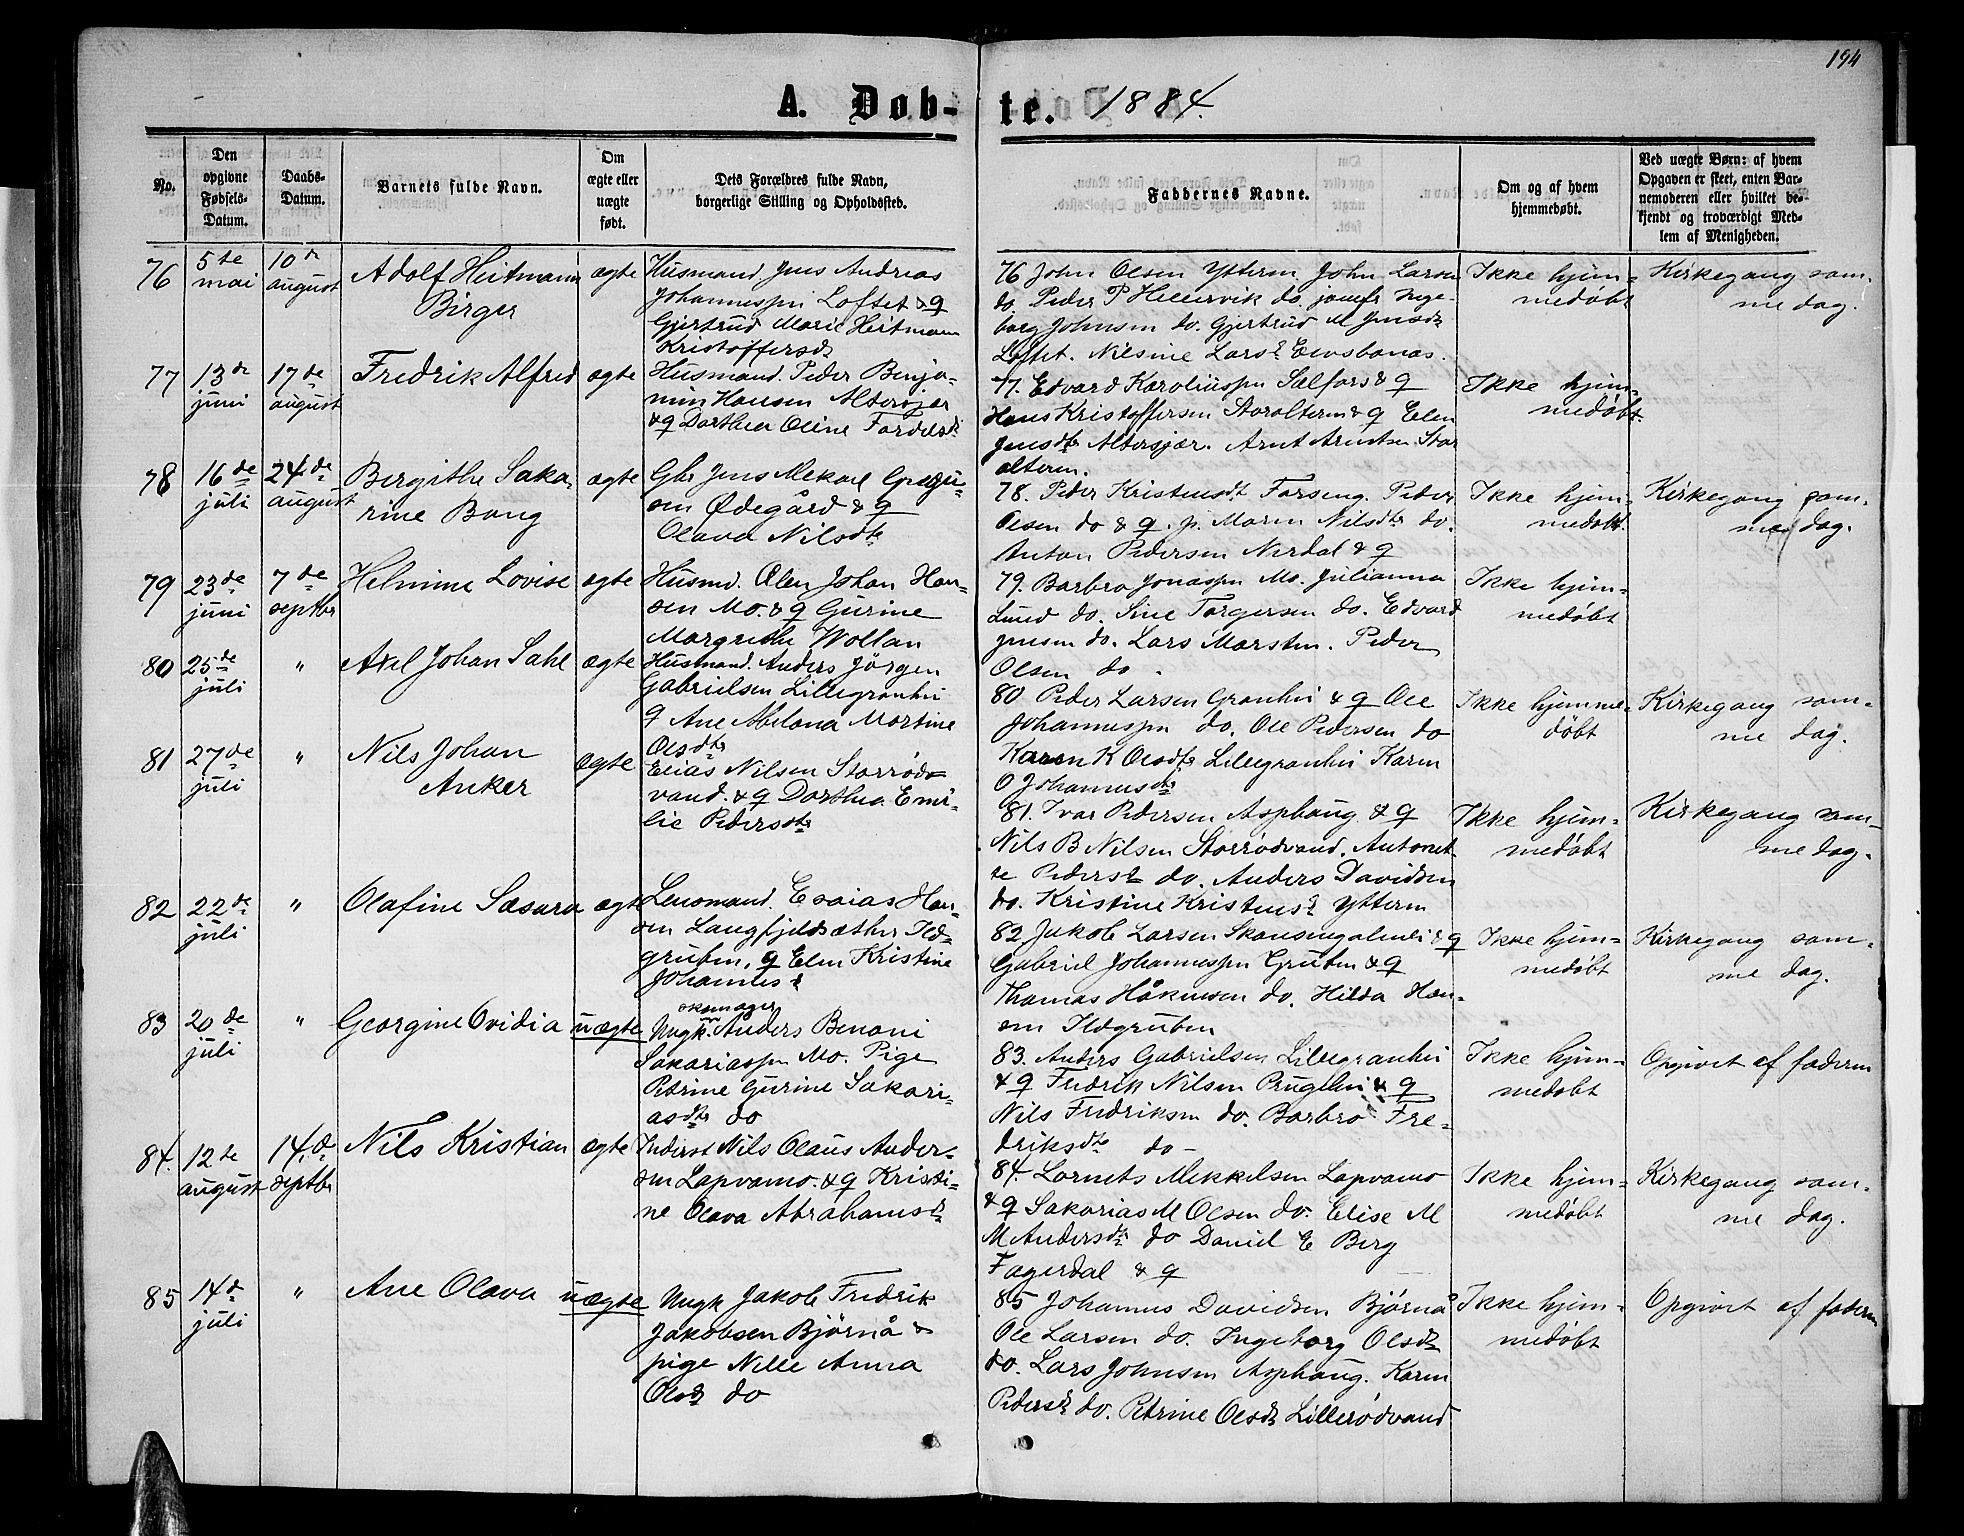 194
A. Døb-te. 1884.
No.
Den opgivne Fødsels-Datum.
Daabs-Datum.
Barnets fulde Navn.
Om ægte eller uægte født.
Dets Forældres fulde Navn, borgerlige Stilling og Opholdssted.
Faddernes Navne.
Om og af hvem hjemmedøbt.
Ved uægte Børn: af hvem Opgaven er skeet, enten Barnemoderen eller hvilket bekjendt og troværdigt Medlem af Menigheden.
76 5te mai 10de august
Adolf Heitmann
Birger
ægte
Husmand Jens Andreas
Johannessen Loftet & q
Gjertrud Marie Heitmann
Kristoffersdr
76 John Olsen Yttern John Larsen
do. Peder P Hellervik do. jomfr Inge-
borg Johnsen do. Gjertrud M Jensdr
Loftet. Nilsine Larsd
Ikke hjem-
medøbt
Kirkegang sam-
me dag.
77 13de juni 17de august
Fredrik Alfred
ægte
Husmand. Peder Benja-
min Hansen Altersjær
& q Dorthea Oline
77. Edvard Karoliussen Selfors & q
Hans Kristoffersen Storalteren & q Elen
Jensdtr Altersjær. Arnt Arntsen Stor
alteren.
Ikke hjem-
medøbt
78 16de juli 24de august
Bergithe Saka-
rine Bang
ægte
Gbr Jens Mekael Gregu-
sen Ødegård & q
Olava Nilsdtr
78. Peder Kristensdt Forseng. Peder
Olsen do & q. p. Maren Nilsdtr do.
Anton Pedersen Nerdal & q
Ikke hjem-
medøbt
Kirkegang sam-
me dag.
79 23de juni 7de septbr
Helmine Lovise
ægte
Husmd. Olen Johan Han-
sen Mo. & q Gurine
Margrethe Wollan
79. Barbro Jonassen Mo. Julianna
Lund do. Sine Torgersen do. Edvard
Jensen do. Lars Marsten. Peder
Olsen do.
Ikke hjem-
medøbt
80 25de juli "
Axel Johan Sahl
ægte
Husmand. Anders Jörgen
Gabrielsen Lillegranhei
q Ane Abelona Martine
Olsdtr
80 Peder Larsen Granhei & q Ole
Johannessen do. Ole Pedersen do
Karen K Olsdtr Lillegranhei Karen
O Johannesdtr
Ikke hjemme-
døbt
Kirkegang sam-
me dag.
81 27de juli "
Nils Johan
Anker
ægte
Elias Nilsen Storrødv
vand. & q Dorthea Emi-
lie Pedersdtr
81. Ivar Pedersen Asphaug & q
Nils B Nilsen Storrødvand. Antonet-
te Pedersd do. Anders Davidsen
do. Kristine Kristensd Yttern
Ikke hjem-
medøbt
Kirkegang sam-
me dag.
82 22de juli "
Olafine Sasara
ægte
Lensmand. Esaias Han-
sen Langfjeldsæther Ild-
gruben, q Elen Kristine
Johannesd
82 Jakob Larsen & q
Gabriel Johannessen Gruben & q
Thomas Håkensen do. Hilda Han-
sen Ildgruben
Ikke hjem-
medøbt
Kirkegang sam-
me dag.
83 20de juli "
Georgine Ovidia
uægte
skomager
Ungk. Anders Benoni
Sakariassen Mo. Pige
Petrine Gurine Sakari-
asdtr do
83. Anders Gabrielsen Lillegranhei
& q Fredrik Nilsen Prughei & q
Nils Fredriksen do. Barbro Fre-
driksdtr do -
Ikke hjem-
medøbt
Opgivet af faderen
84. 12te august 14.de septbr
Nils Kristian
ægte
Inderst Nils Olaus Ander-
sen Lapvamo. & q Kristi-
ne Olava Abrahamsd
84. Lornts Mekkelsen Lapvamo
& q Sakarias M Olsen do. Elise M
M Andersdtr do Daniel E Berg
Fagerdal & q
Ikke hjem-
medøbt
Kirkegang sam-
me dag.
85 14de juli "
Ane Olava
uægte
Ungk Jakob Fredrik
Jakobsen Björnå &
pige Nille Anna
Olsd do
85 Johannes Davidsen Bjørnå
Ole Larsen do. Ingeborg Olsdr
do. Lars Johnsen Asphaug. Karen
Pedersd do. Petrine Olsdr Lillerödvand
Ikke hjem-
medøbt
Opgivet af faderen